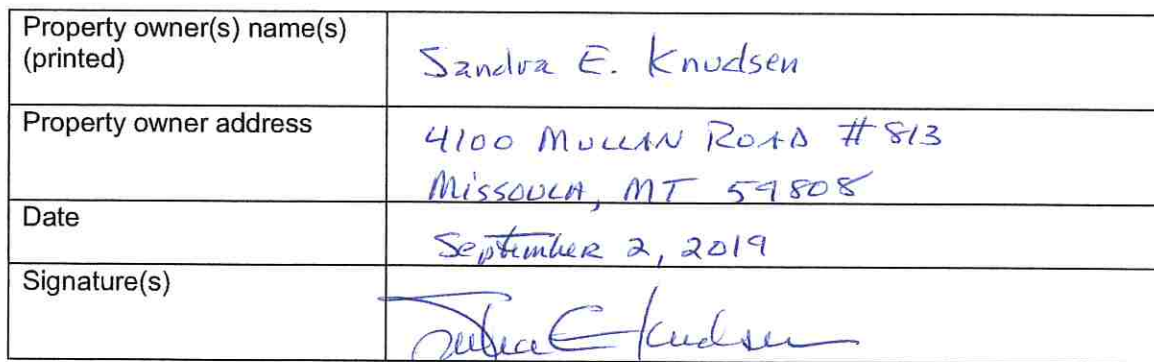 Property owner(s) name(s)
(printed)
Sandra E. Knudsen
Property owner address
4100 MULLAN ROAD #813
MISSOULA, MT 59808
Date
September 2, 2019
Signature(s)
Sandra E Knudsen